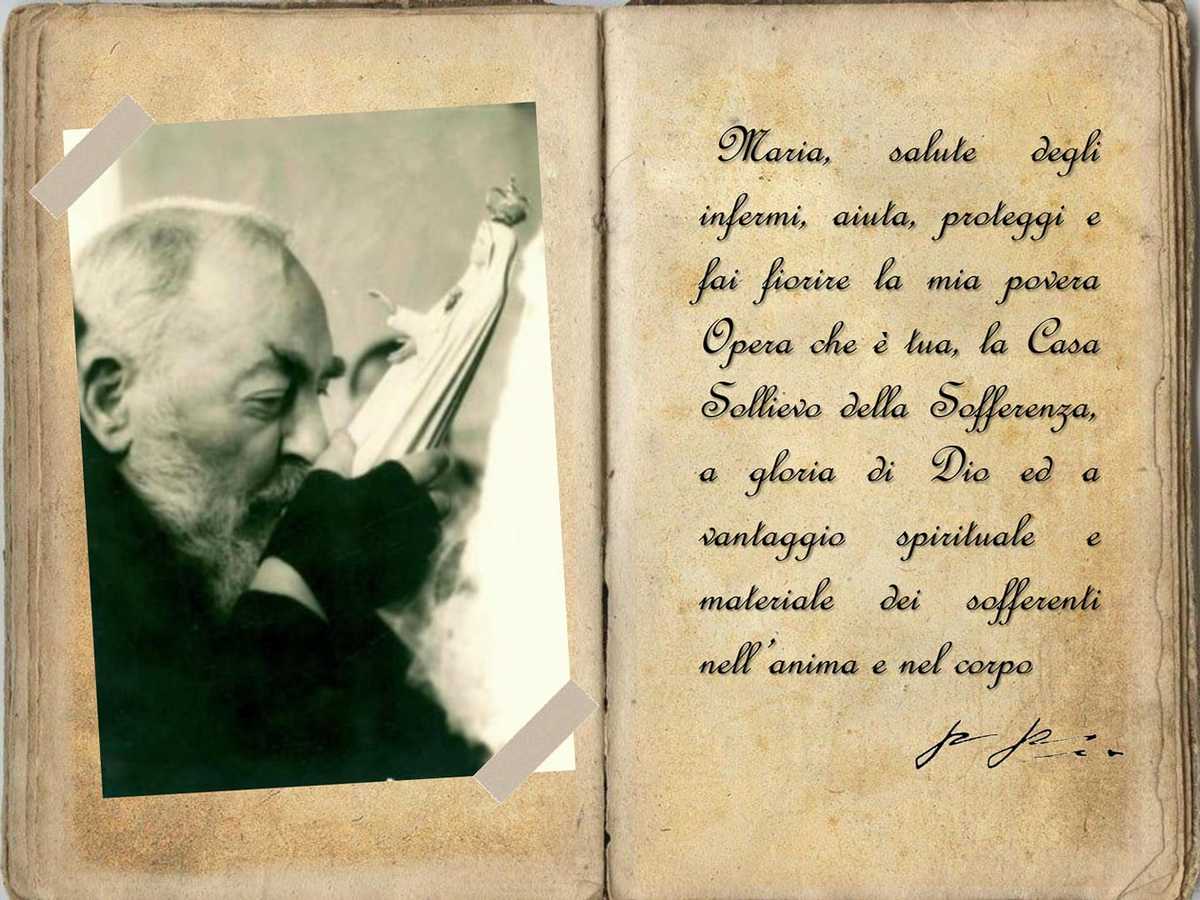 Maria, salute degli
infermi, aiuta, proteggi e
fai fiorire la mia povera
Opera che è tua, la Casa
Sollievo della Sofferenza,
a gloria di Dio ed a
vantaggio spirituale e
materiale dei sofferenti
nell'anima e nel corpo